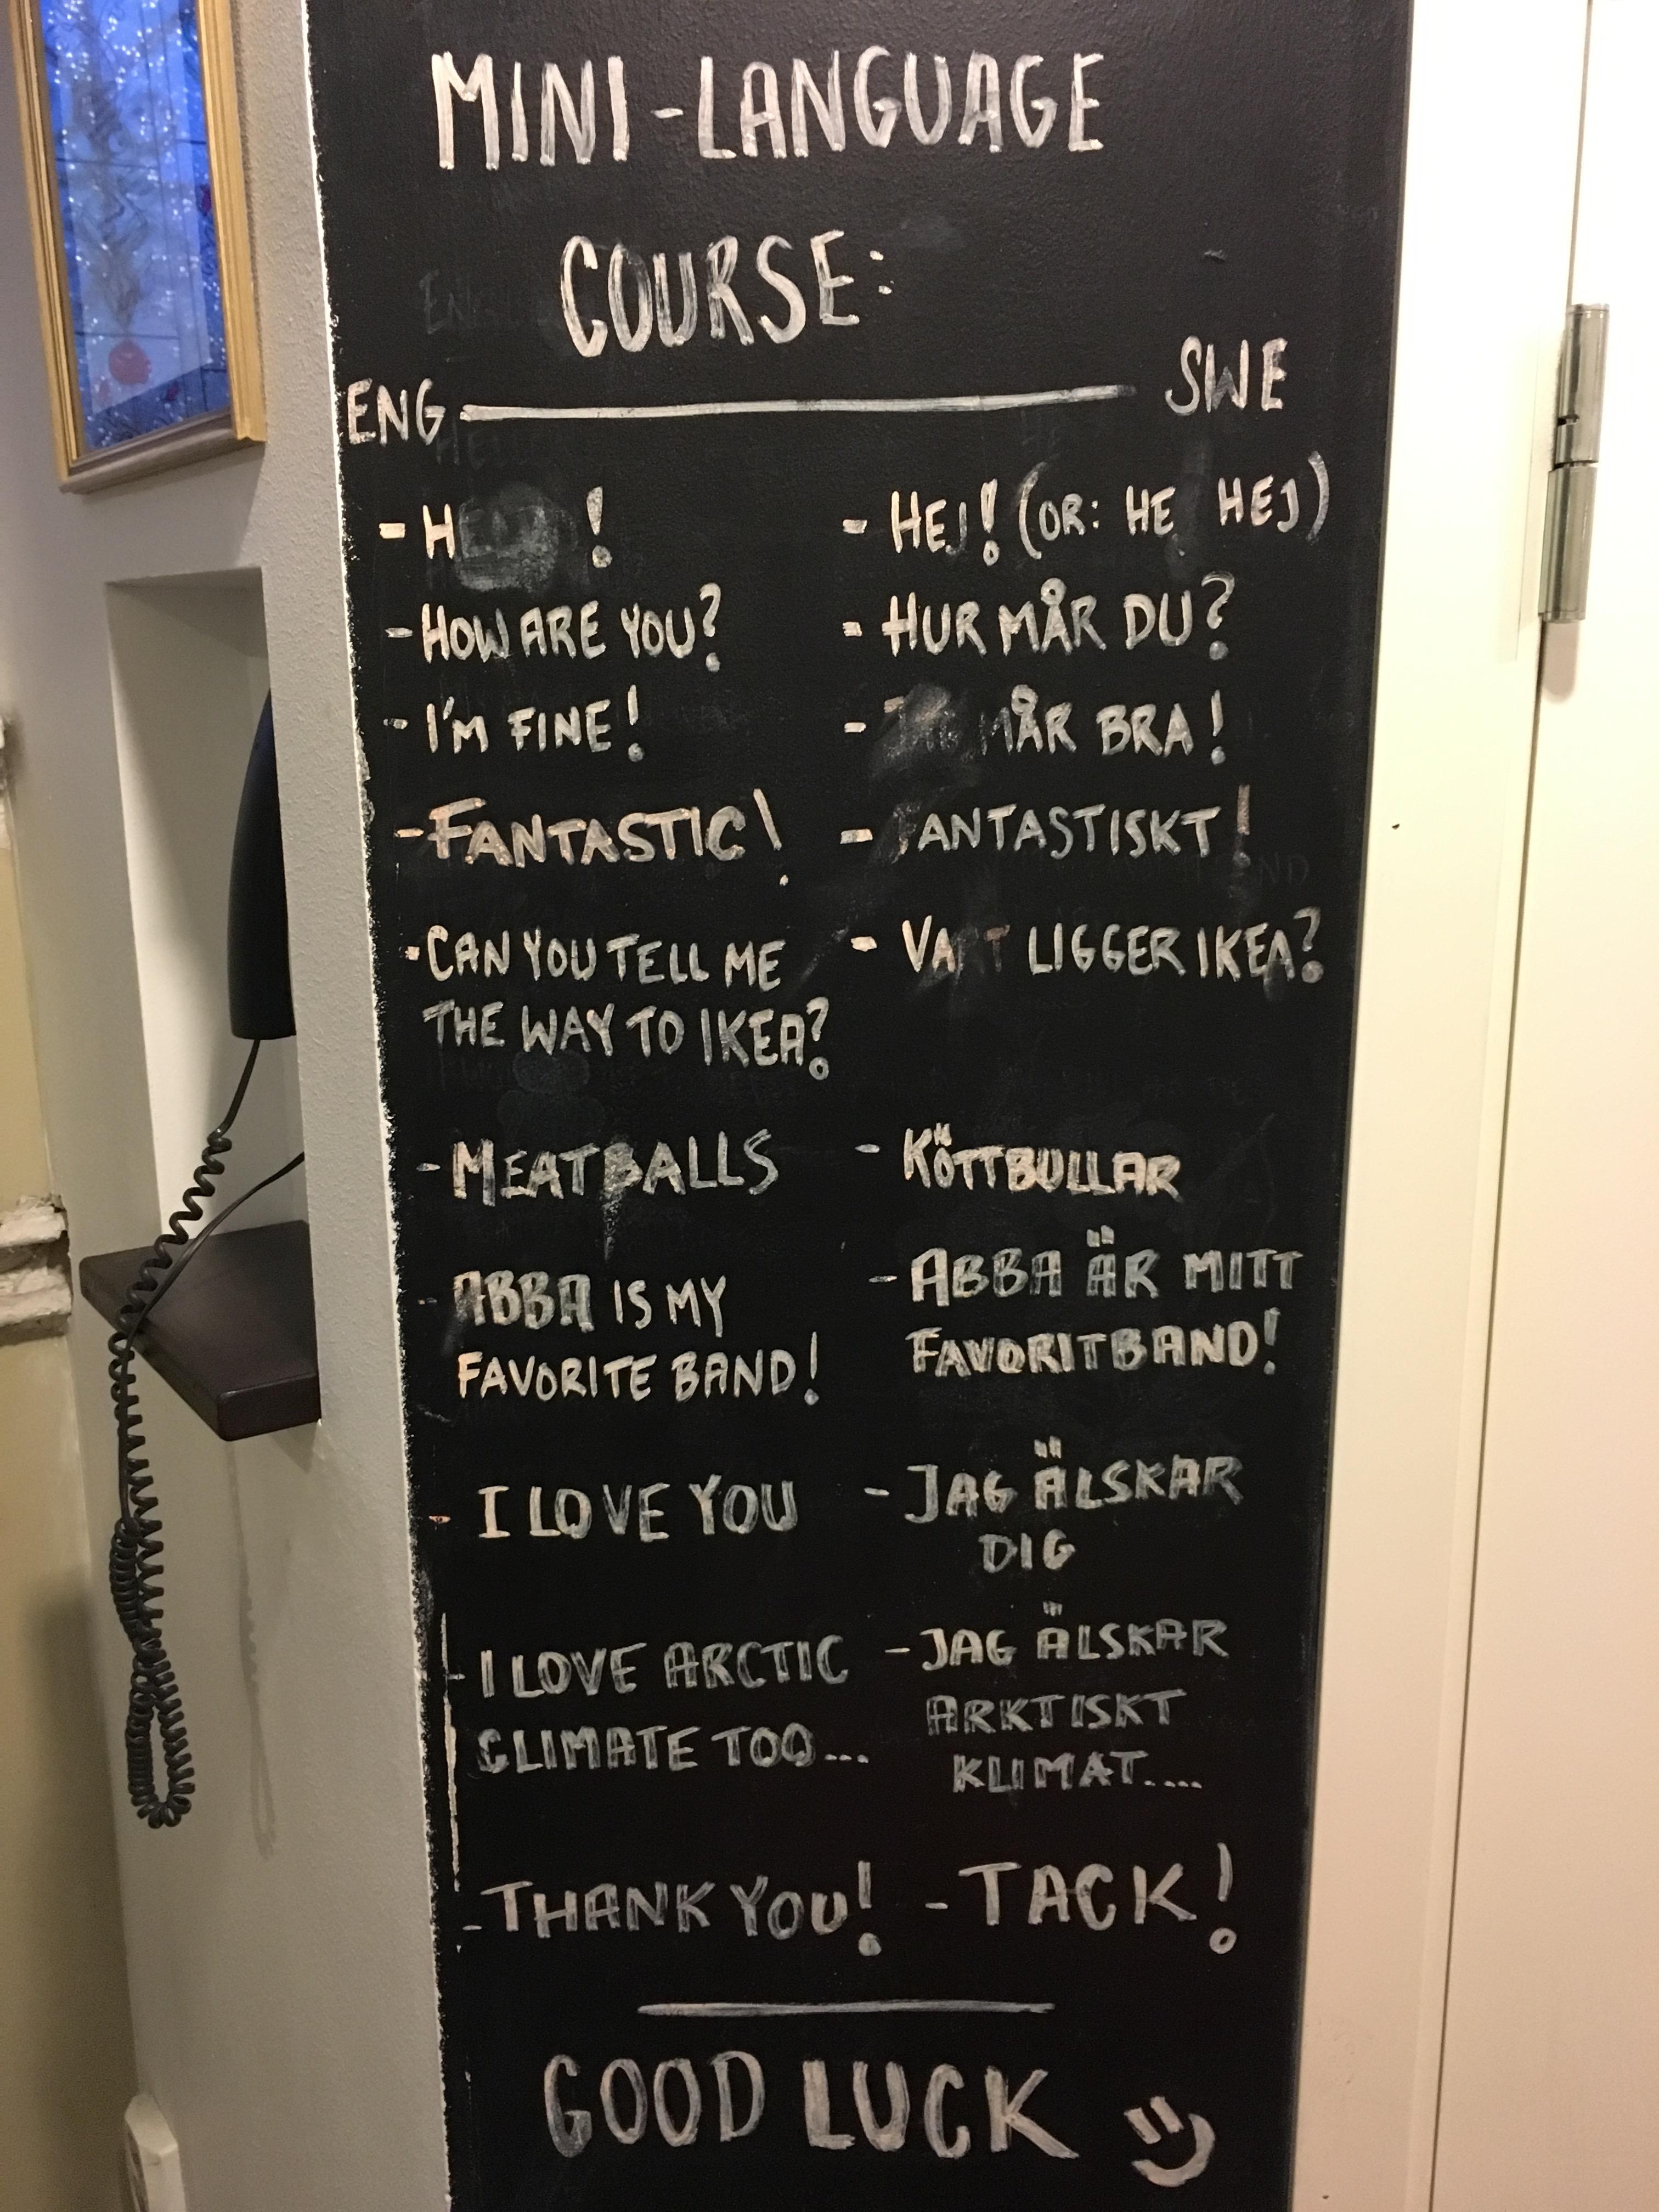 MINI-LANGUAGE
COURSE:
ENG SWE
- HELLO! - HEJ! (OR: HEJ HEJ)
- HOW ARE YOU? - HUR MÅR DU?
- I'M FINE! - JAG MÅR BRA!
- FANTASTIC! - FANTASTISKT!
- CAN YOU TELL ME - VART LIGGER IKEA?
THE WAY TO IKEA?
- MEATBALLS - KÖTTBULLAR
- ABBA IS MY - ABBA ÄR MITT
FAVORITE BAND! FAVORITBAND!
- I LOVE YOU - JAG ÄLSKAR
DIG
- I LOVE ARCTIC - JAG ÄLSKAR
CLIMATE TOO... ARKTISKT
KLIMAT....
- THANK YOU! - TACK!
GOOD LUCK